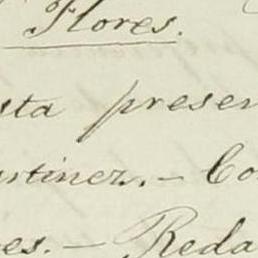 Flores.
sta presen
artinez. — Co
es. — Reda